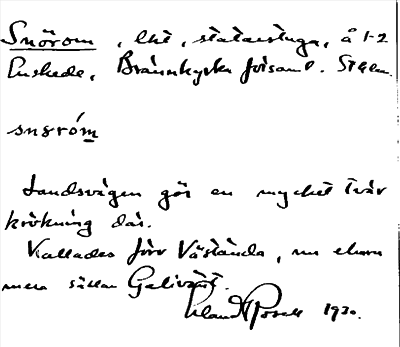 Snörom, lht, statarstuga, å 1-2
Enskede, Brännkyrka församl. Sthlm.
snsróm
Landsvägen gör en mycket tvär
krökning där.
Kallades förr Västända, nu ehuru
mera sällan Galivänt.
1930.